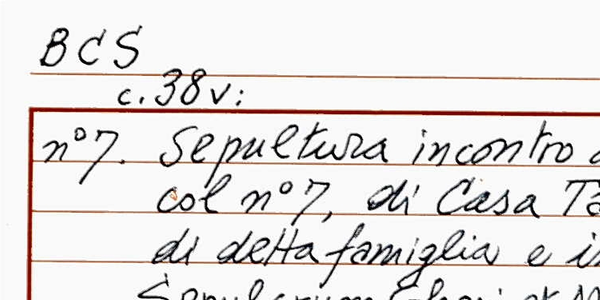 BCS
c. 38v:
n° 7. Sepultura incontro
col n° 7, di Casa
di detta famiglia e
Sepulcrum